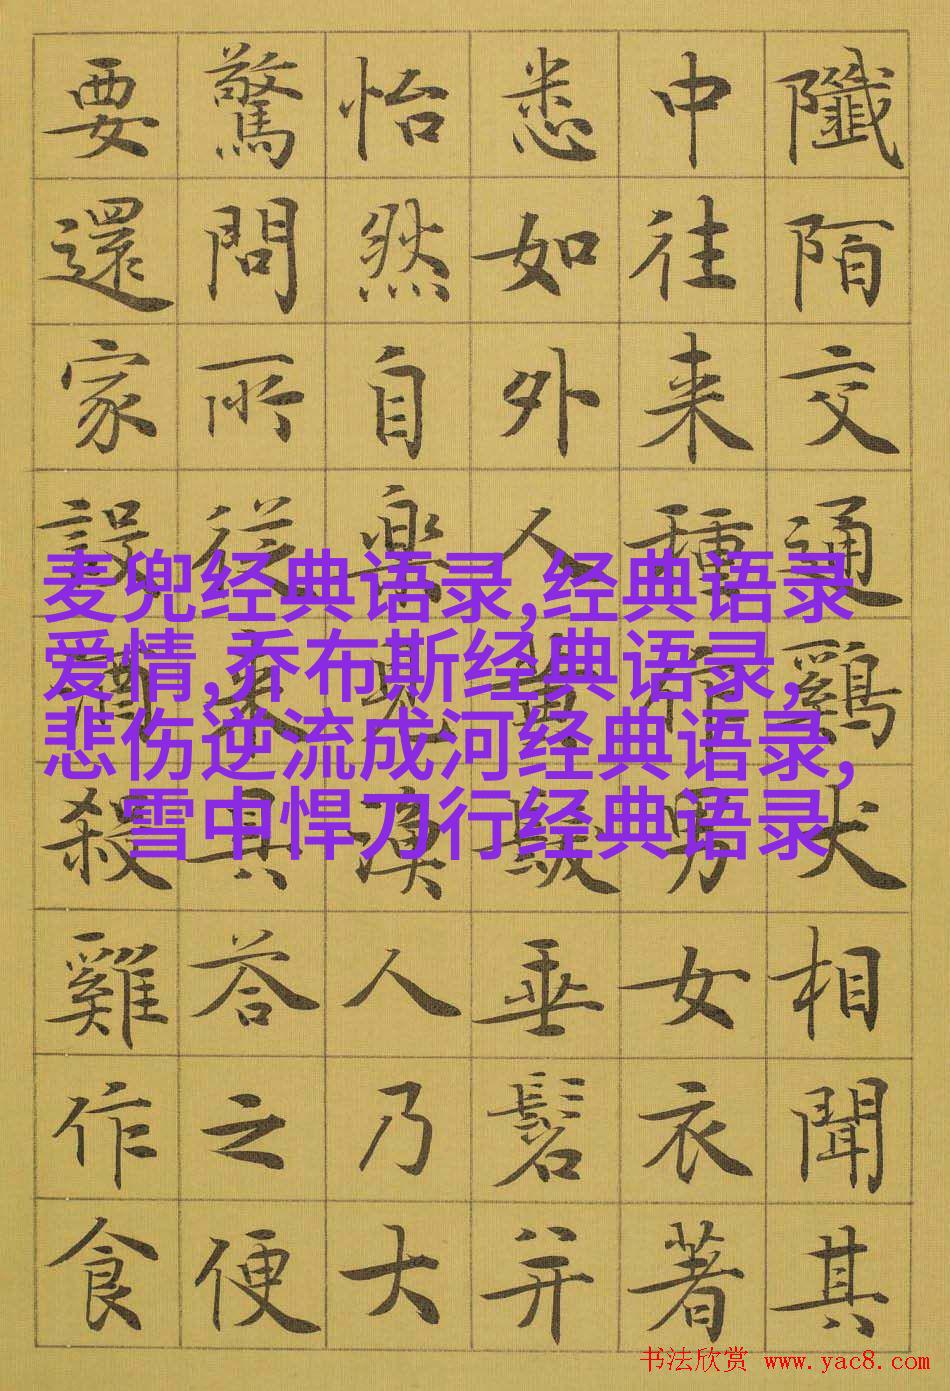 陌交通鷄犬相聞其
中往来種作男女衣著
悉如外人黄髮垂髫并
怡然自樂見漁人乃大
驚問所從来具答之便
要還家設酒殺雞作食
麦兜经典语录,经典语录
爱情,乔布斯经典语录,
悲伤逆流成河经典语录,
雪中悍刀行经典语录
书法欣赏 www.yac8.com